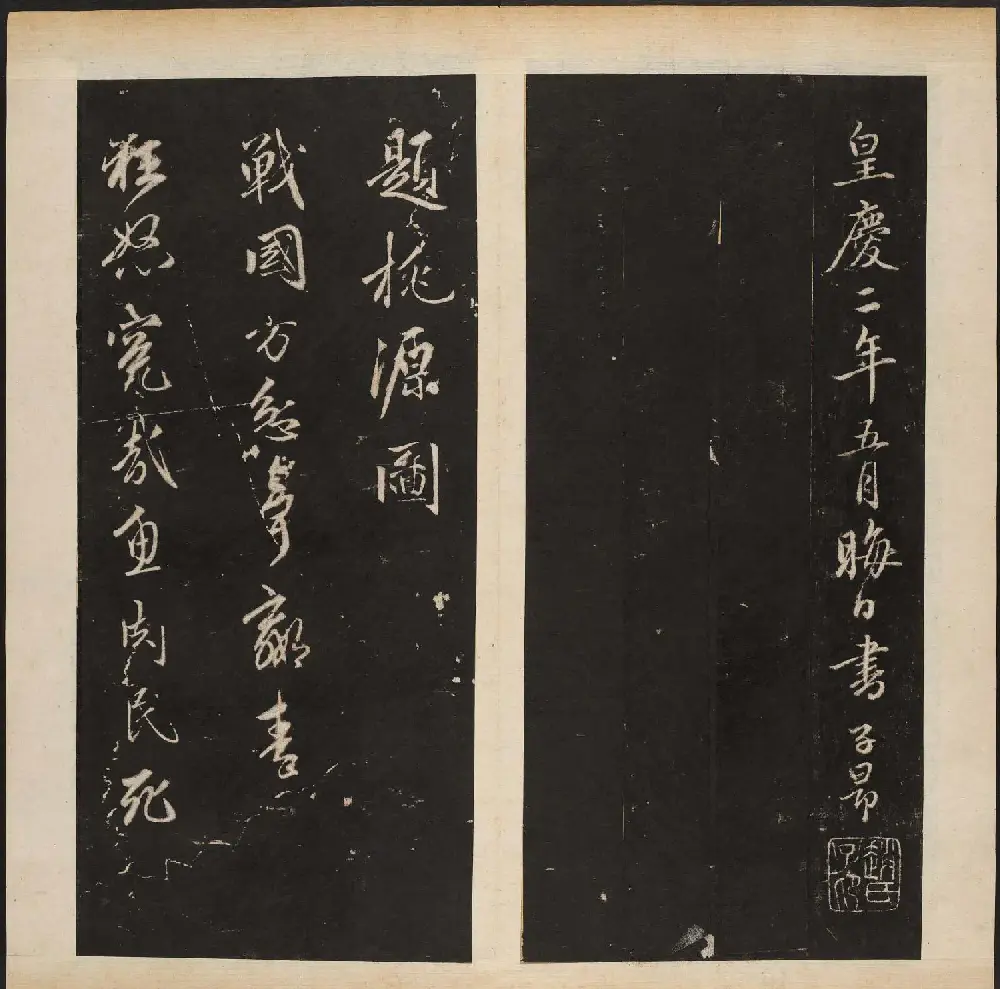 皇慶二年五月晦日書子昂
趙氏子昂
題桃源圖
戰國方忿爭嬴秦
狂怒冤哉魚肉民死